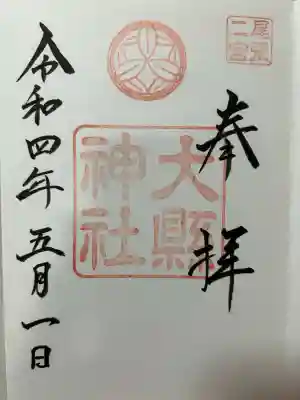 尾張
二宮
奉拝
大縣
神社
令和四年五月一日